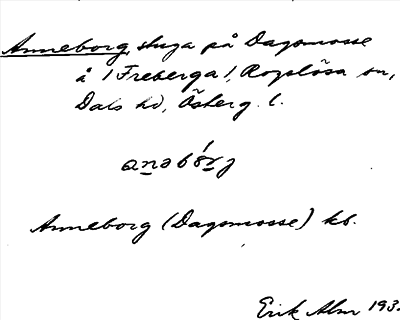 Anneborg, stuga på Dagsmosse
å /Freberga/, Rogslösa sn,
Dals hd, Österg. l.
Anneborg (Dagsmosse) kb.
Erik Alm 193.